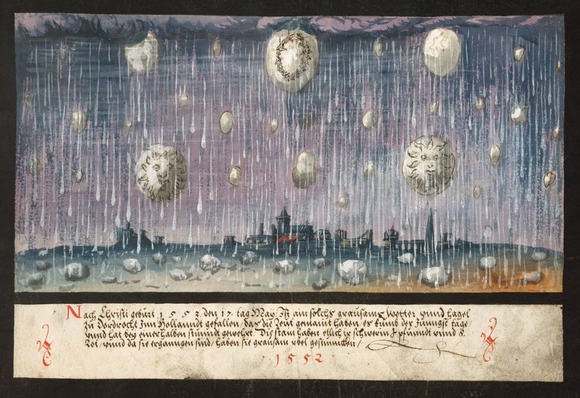 Nach Christi geburt 1552. den 17. tag May. Ist ain solchs grausams wetter vnnd hagel
zu Dordrecht Inn Hollannd gefallen, das die leut gemaint haben es kumb der Jüngst tage
vnnd hat bey einer halben stunndt gewehrt. Die stain haben etlich gewegen pfunndt vnnd 8.
Lot, vnnd da sie ergangen sind, haben sie grausam vbel gestuncken.
1552